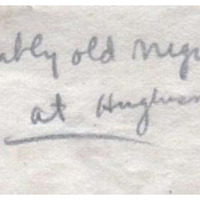 ably old negr
at Hughesn